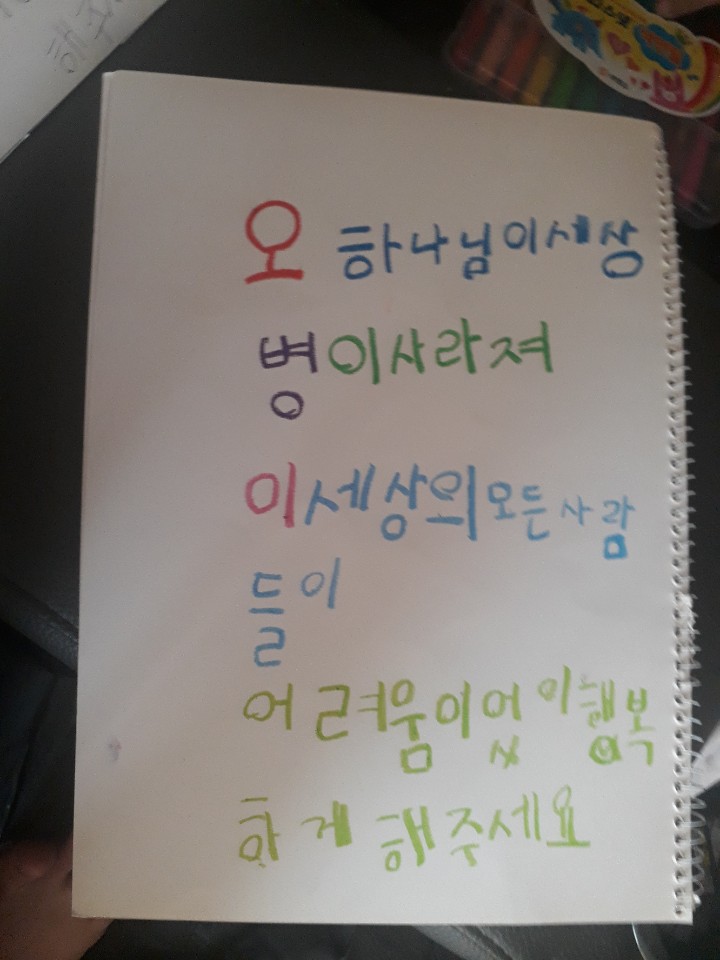 해주
오 하나님이세상
병이사라져
이세상의모든사람
들이
어려움이있이행복
하게해주세요